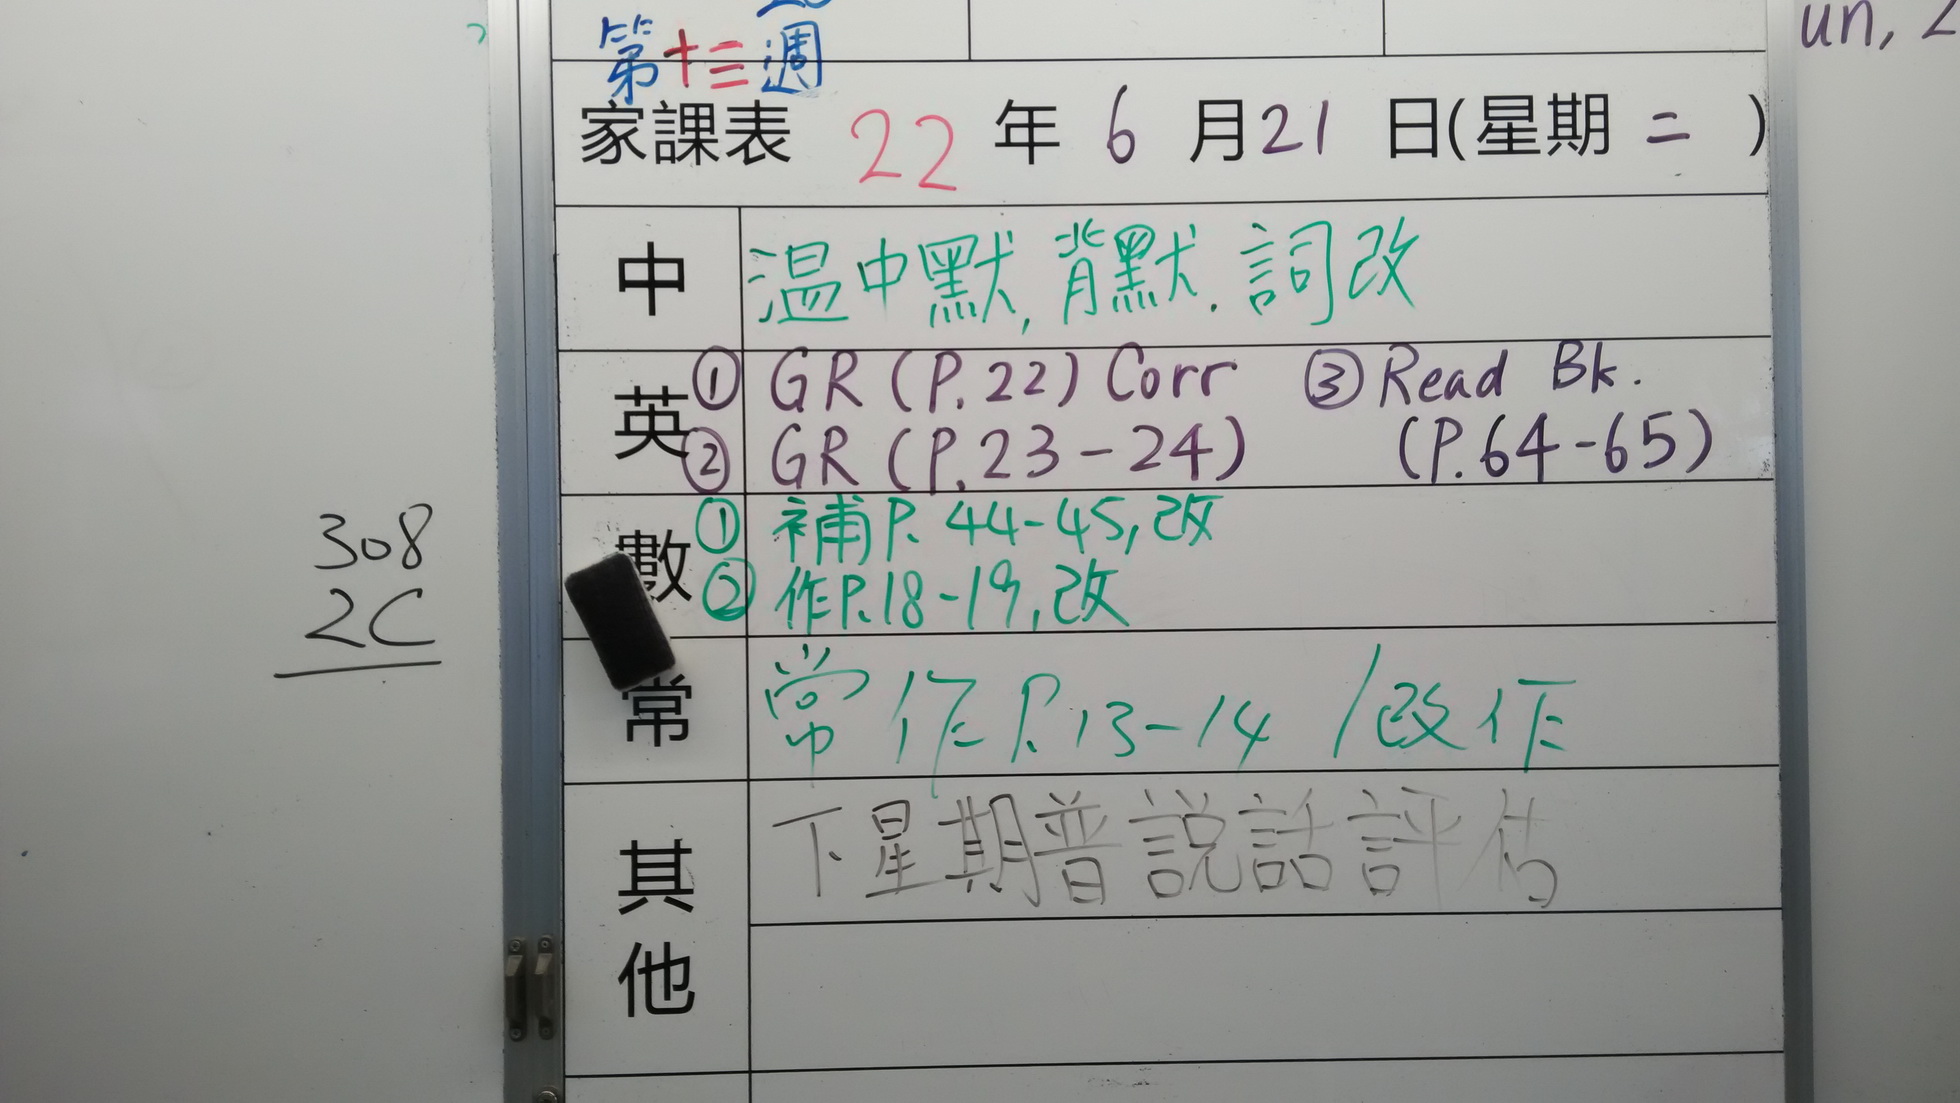 第十三週
家課表 22 年 6 月 21 日(星期 二 )
中 温中默, 背默. 詞改
英 ① GR (P.22) Corr ③ Read Bk.
② GR (P.23-24) (P.64-65)
數 ① 補P. 44-45, 改
② 作P.18-19, 改
常 常作P.13-14 /改作
其他 下星期普說話評估
308
2C
un,